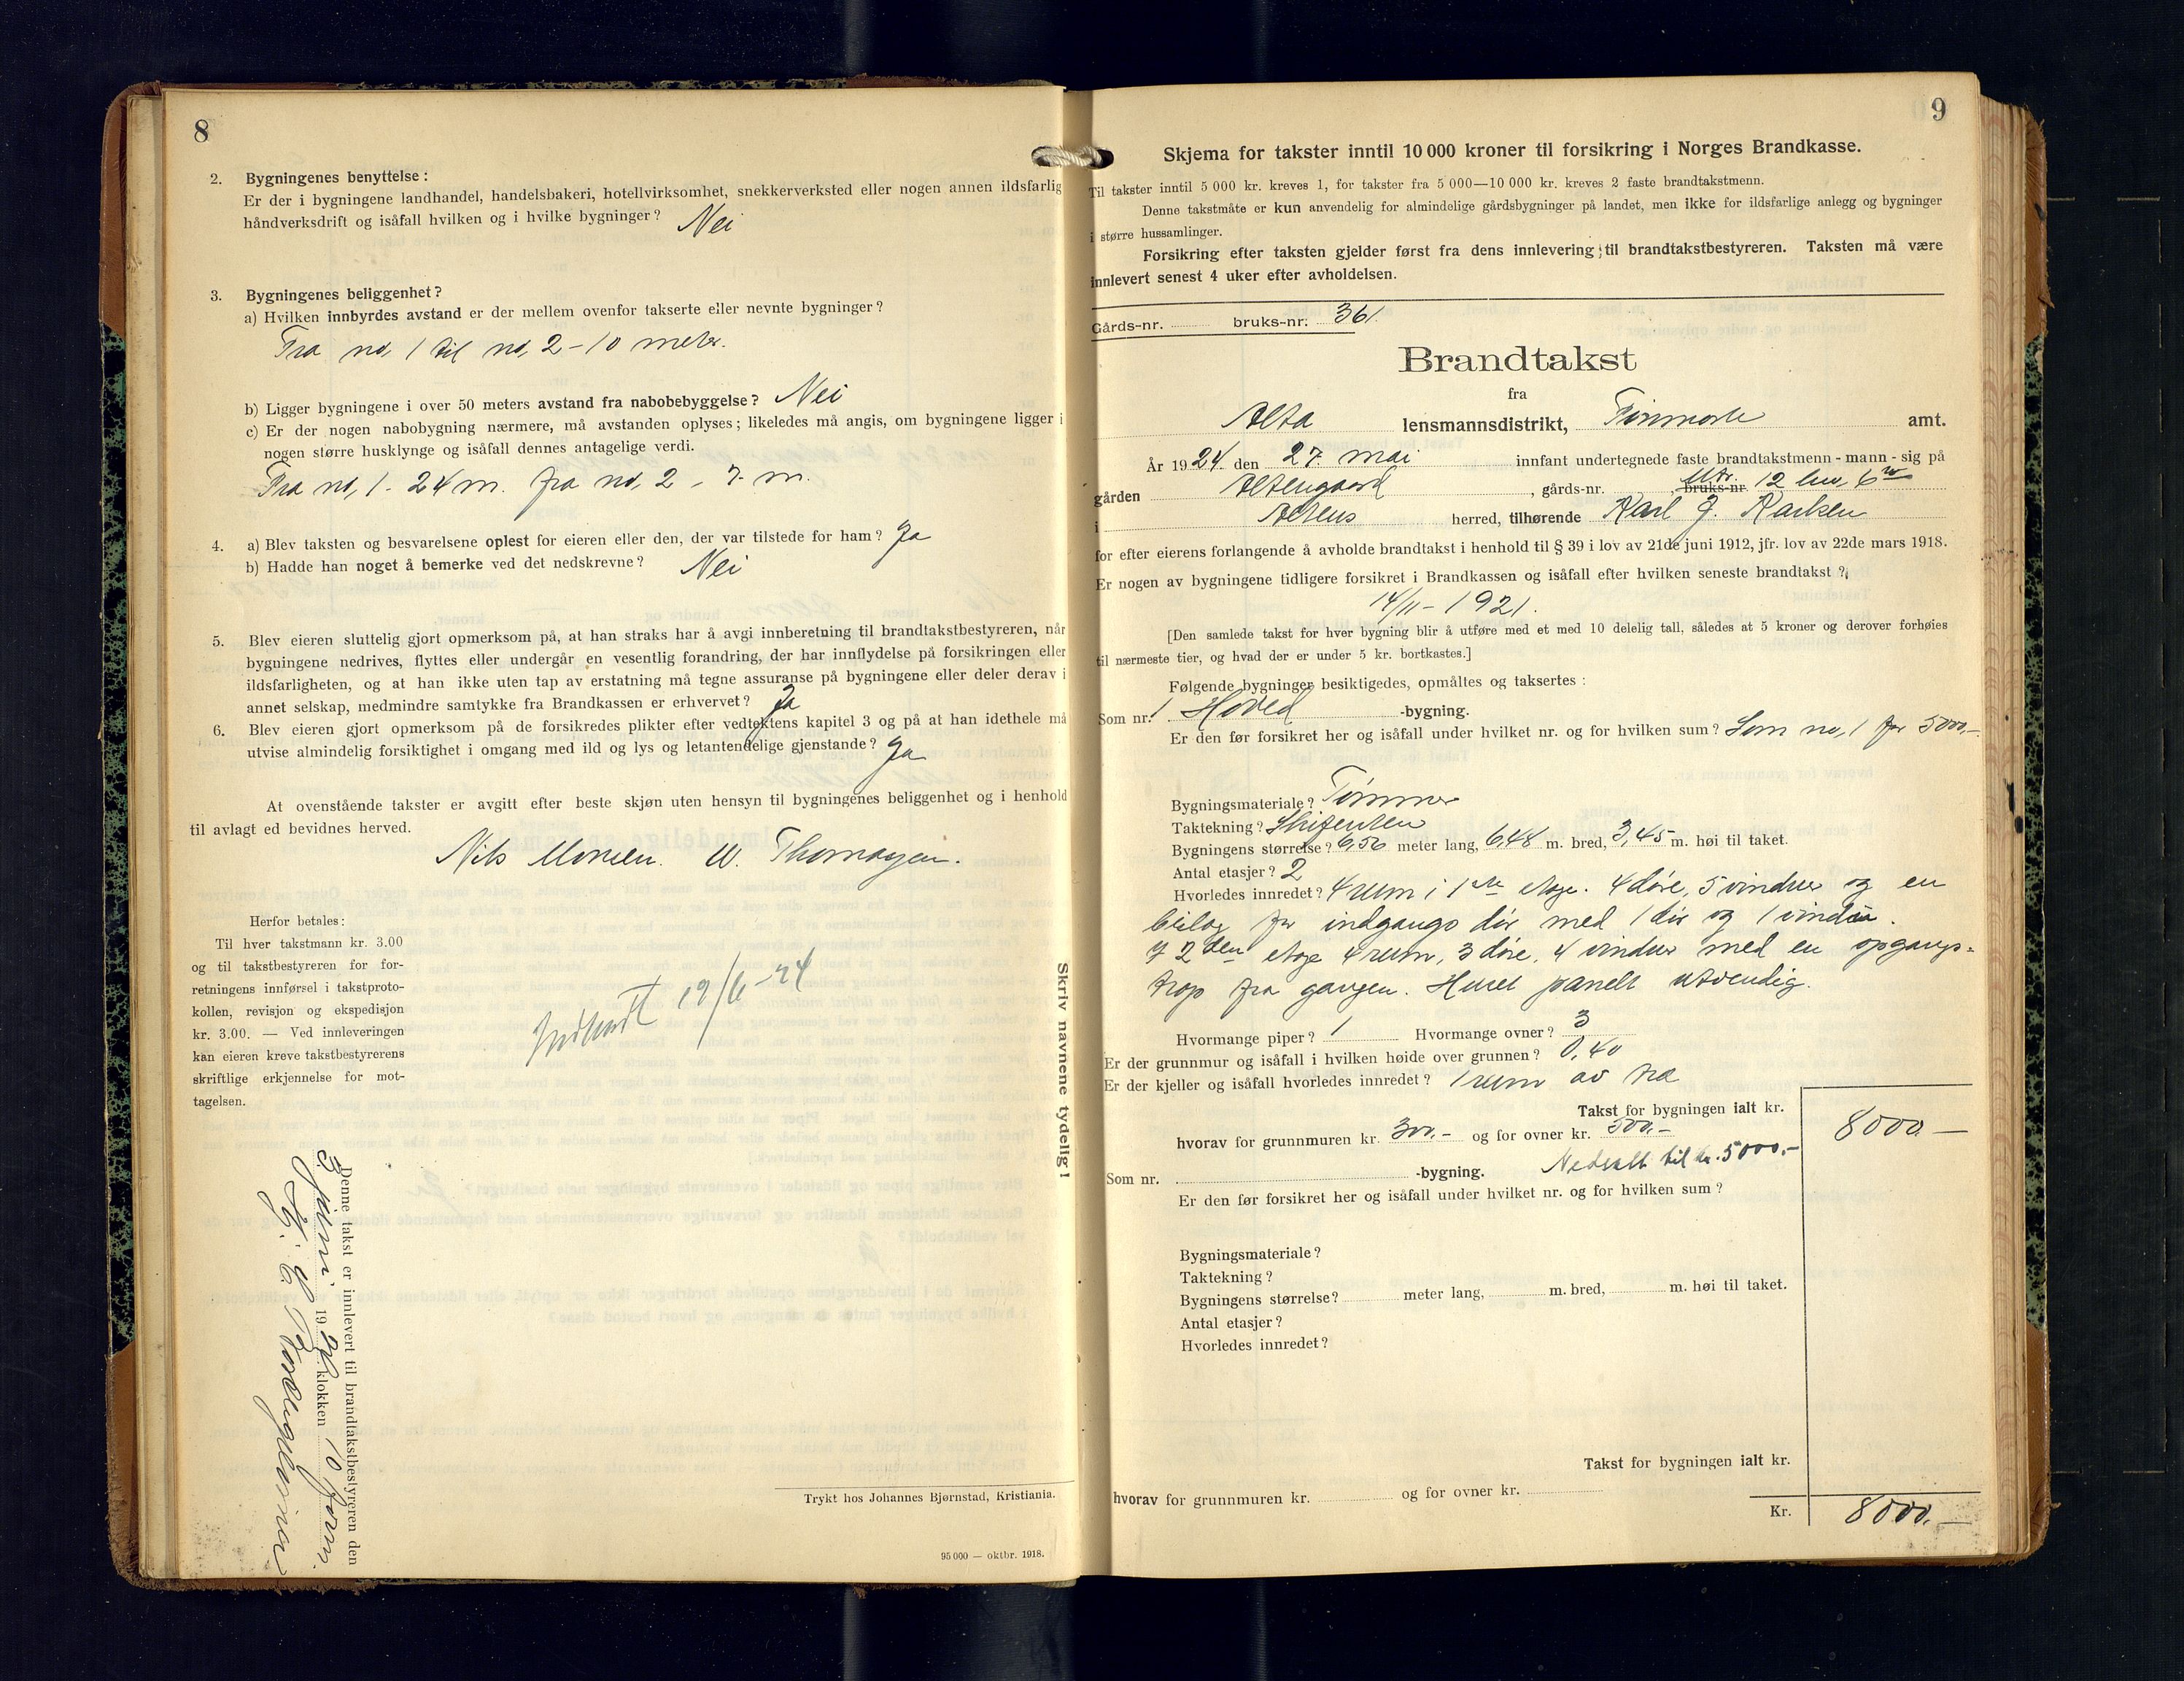 8
2. Bygningenes benyttelse :
Er der i bygningene landhandel, handelsbakeri, hotellvirksomhet, snekkerverksted eller nogen annen ildsfarlig
håndverksdrift og isåfall hvilken og i hvilke bygninger? Nei
3. Bygningenes beliggenhet?
a) Hvilken innbyrdes avstand er der mellem ovenfor takserte eller nevnte bygninger?
Fra no, 1 til no, 2 - 10 meter.
b) Ligger bygningene i over 50 meters avstand fra nabobebyggelse? Nei
c) Er der nogen nabobygning nærmere, må avstanden oplyses; likeledes må angis, om bygningene ligger i
nogen større husklynge og isåfall dennes antagelige verdi.
Fra no, 1 - 24 m. fra no, 2 - 7 m.
4. a) Blev taksten og besvarelsene oplest for eieren eller den, der var tilstede for ham? Ja
b) Hadde han noget å bemerke ved det nedskrevne? Nei
5. Blev eieren sluttelig gjort opmerksom på, at han straks har å avgi innberetning til brandtakstbestyreren, når
bygningene nedrives, flyttes eller undergår en vesentlig forandring, der har innflydelse på forsikringen eller
ildsfarligheten, og at han ikke uten tap av erstatning må tegne assuranse på bygningene eller deler derav i
annet selskap, medmindre samtykke fra Brandkassen er erhvervet? Ja
6. Blev eieren gjort opmerksom på de forsikredes plikter efter vedtektens kapitel 3 og på at han idethele må
utvise almindelig forsiktighet i omgang med ild og lys og letantendelige gjenstande? Ja
At ovenstående takster er avgitt efter beste skjøn uten hensyn til bygningenes beliggenhet og i henhold
til avlagt ed bevidnes herved.
Nils W. Thomasen.
Herfor betales:
Til hver takstmann kr. 3.00
og til takstbestyreren for for-
retningens innførsel i takstproto-
kollen, revisjon og ekspedisjon
kr. 3.00. — Ved innleveringen
kan eieren kreve takstbestyrerens
skriftlige erkjennelse for mot-
tagelsen.
Indført 19/6-24
Denne takst er innlevert til brandtakstbestyreren den
3 juni 1924 klokken 10 form.
Skriv navnene tydelig!
Trykt hos Johannes Bjørnstad, Kristiania.
95 000 — oktbr. 1918.
9
Skjema for takster inntil 10 000 kroner til forsikring i Norges Brandkasse.
Til takster inntil 5 000 kr. kreves 1, for takster fra 5 000—10 000 kr. kreves 2 faste brandtakstmenn.
Denne takstmåte er kun anvendelig for almindelige gårdsbygninger på landet, men ikke for ildsfarlige anlegg og bygninger
i større hussamlinger.
Forsikring efter taksten gjelder først fra dens innlevering til brandtakstbestyreren. Taksten må være
innlevert senest 4 uker efter avholdelsen.
Gårds-nr. bruks-nr. 361.
Brandtakst
fra
Alta lensmannsdistrikt, Finmark amt.
År 1924 den 27. mai innfant undertegnede faste brandtakstmenn - mann - sig på
gården Altengaard, gårds-nr. bruks-nr. Mtr. 12 løv, 6
i Altens herred, tilhørende Karl J. Karlsen
for efter eierens forlangende å avholde brandtakst i henhold til § 39 i lov av 21de juni 1912, jfr. lov av 22de mars 1918.
Er nogen av bygningene tidligere forsikret i Brandkassen og isåfall efter hvilken seneste brandtakst?
14/11 - 1921.
[Den samlede takst for hver bygning blir å utføre med et med 10 delelig tall, således at 5 kroner og derover forhøies
til nærmeste tier, og hvad der er under 5 kr. bortkastes.]
Følgende bygninger besiktigedes, opmåltes og taksertes :
Som nr. 1 Hoved -bygning.
Er den før forsikret her og isåfall under hvilket nr. og for hvilken sum? Som no, 1 for 5000,-
Bygningsmateriale? Tømmer
Taktekning? Skifersten
Bygningens størrelse? 6,56 meter lang, 6,48 m. bred, 3,45 m. høi til taket.
Antal etasjer? 2
Hvorledes innredet? 4 rum i 1ste etage. 4 døre, 5 vinduer og en
bislag for indgangs dør med 1 dør og 1 vindu.
I 2den etage 4 rum, 3 døre, 4 vinduer med en opgangs-
trap fra gangen. Huset panelt utvendig.
Hvormange piper? 1 Hvormange ovner? 3
Er der grunnmur og isåfall i hvilken høide over grunnen? 0,40
Er der kjeller og isåfall hvorledes innredet? 1 rum av træ
Takst for bygningen ialt kr. 8000.—
hvorav for grunnmuren kr. 300.- og for ovner kr. 500.-
Nedsatt til kr. 5000.-
Som nr. -bygning.
Er den før forsikret her og isåfall under hvilket nr. og for hvilken sum?
Bygningsmateriale?
Taktekning?
Bygningens størrelse? meter lang, m. bred, m. høi til taket.
Antal etasjer?
Hvorledes innredet?
Takst for bygningen ialt kr.
hvorav for grunnmuren kr. og for ovner kr.
Kr. 8000.—